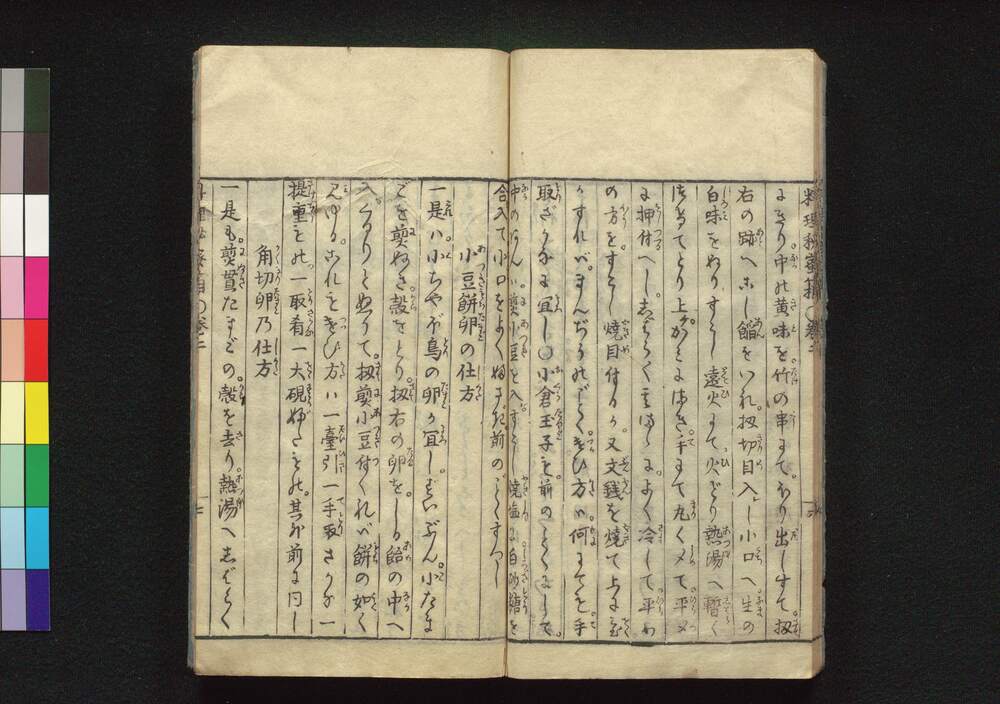 にきり中の黄味を竹の串にてほり出しすて扨
右の跡へこし餡をいれ扨切目入し小口へ生の
白味をぬりすこし遠火にて火どり熱湯へ暫く
つけおてとり上かみにはさみ手にて丸くメて平メ
に押付へししばらく其まゝによく冷して平め
の方をすこし焼目付るか又文銭を焼て上に
すれバまんぢうのごとくつかひ方ハ何にても手
取ざかなに宜し○小倉玉子も前のごとくにして
中のあんハ煮小豆を入すこし焼塩に白砂糖を
合入て小口をよくぬさぎ前のごとくすべし
小豆餅卵の仕方
一是ハ小ちやぼ鳥の卵か宜しずいぶん小たま
ごを煮ぬき殻をとり扨右の卵をしる飴の中へ
入くるりとぬりて扨煮小豆付くれバ餅の如く
見ゆるこれもつかひ方ハ一臺引一手取さかな一
提重もの一取肴一大硯ぶたもの其外前に同し
角切卵乃仕方
一是も煮貫たまごの殻を去り熱湯へしばらく